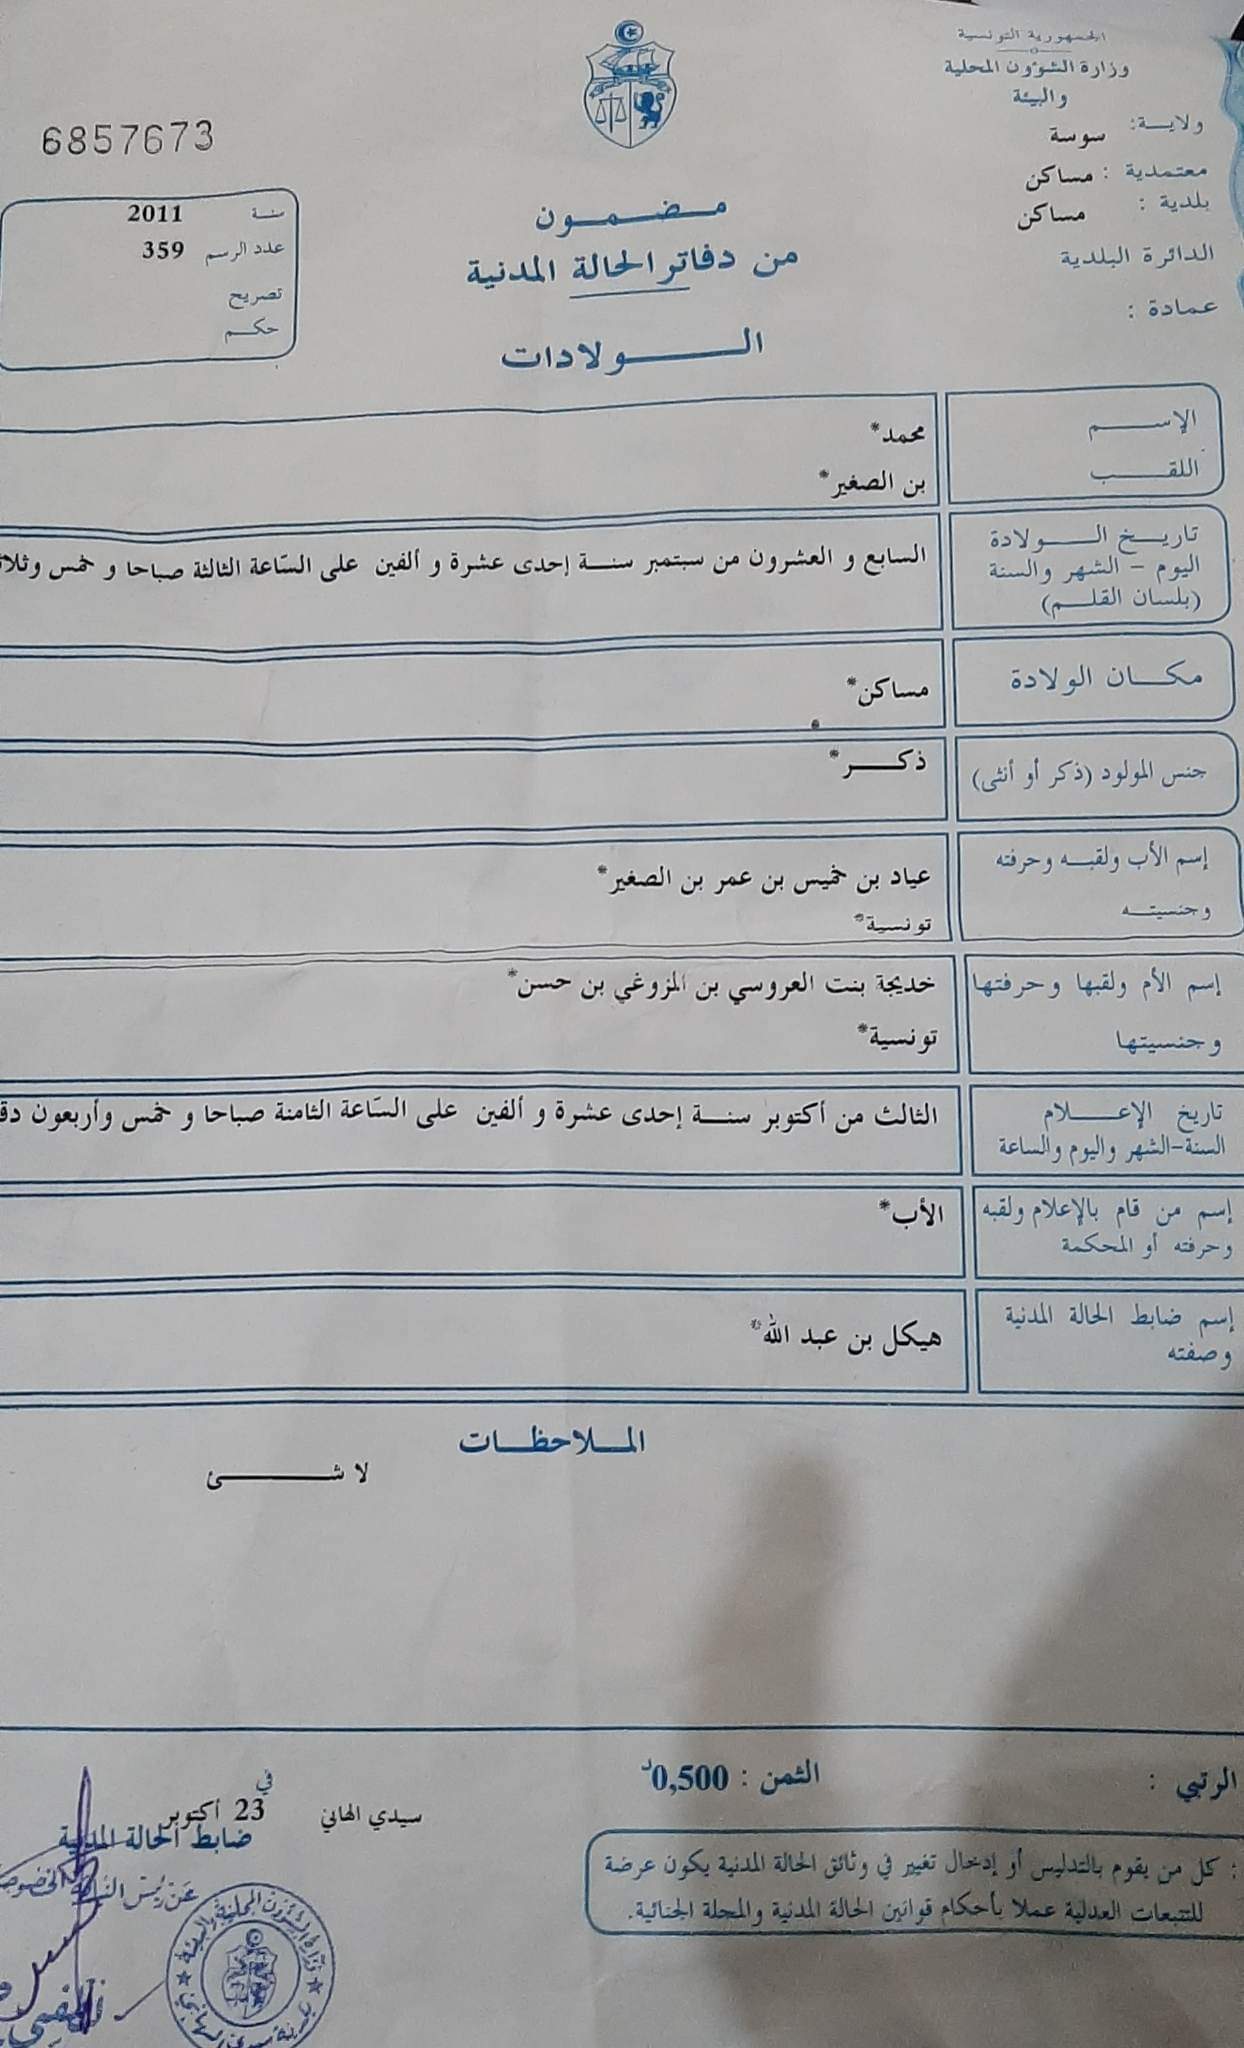 الجمهورية التونسية
وزارة الشؤون المحلية
والبيئة
ولاية: سوسة
معتمدية : مساكن
بلدية : مساكن
الدائرة البلدية
عمادة :
6857673
سنة 2011
عدد الرسم 359
تصريح
حكم
مضمون
من دفاتر الحالة المدنية
الولادات
الإسم محمد*
اللقب بن الصغير*
تاريخ الولادة
اليوم - الشهر والسنة
(بلسان القلم)
السابع و العشرون من سبتمبر سنة إحدى عشرة و ألفين على السّاعة الثالثة صباحا و خمس
مكان الولادة مساكن*
جنس المولود (ذكر أو أنثى) ذكر*
إسم الأب ولقبه وحرفته
وجنسيته
عياد بن خميس بن عمر بن الصغير*
تونسية*
إسم الأم ولقبها وحرفتها
وجنسيتها
خديجة بنت العروسي بن المزوغي بن حسن*
تونسية*
تاريخ الإعلام
السنة-الشهر واليوم والساعة
الثالث من أكتوبر سنة إحدى عشرة و ألفين على السّاعة الثامنة صباحا و خمس وأربعون
إسم من قام بالإعلام ولقبه
وحرفته أو المحكمة
الأب*
إسم ضابط الحالة المدنية
وصفته
هيكل بن عبد الله*
الملاحظات
لا شئ
الرتبي :
الثمن : 0,500د
سيدي الهاني في 23 أكتوبر
ضابط الحالة المدنية
: كل من يقوم بالتدليس أو إدخال تغيير في وثائق الحالة المدنية يكون عرضة
للتتبعات العدلية عملا بأحكام قوانين الحالة المدنية والمجلة الجنائية.